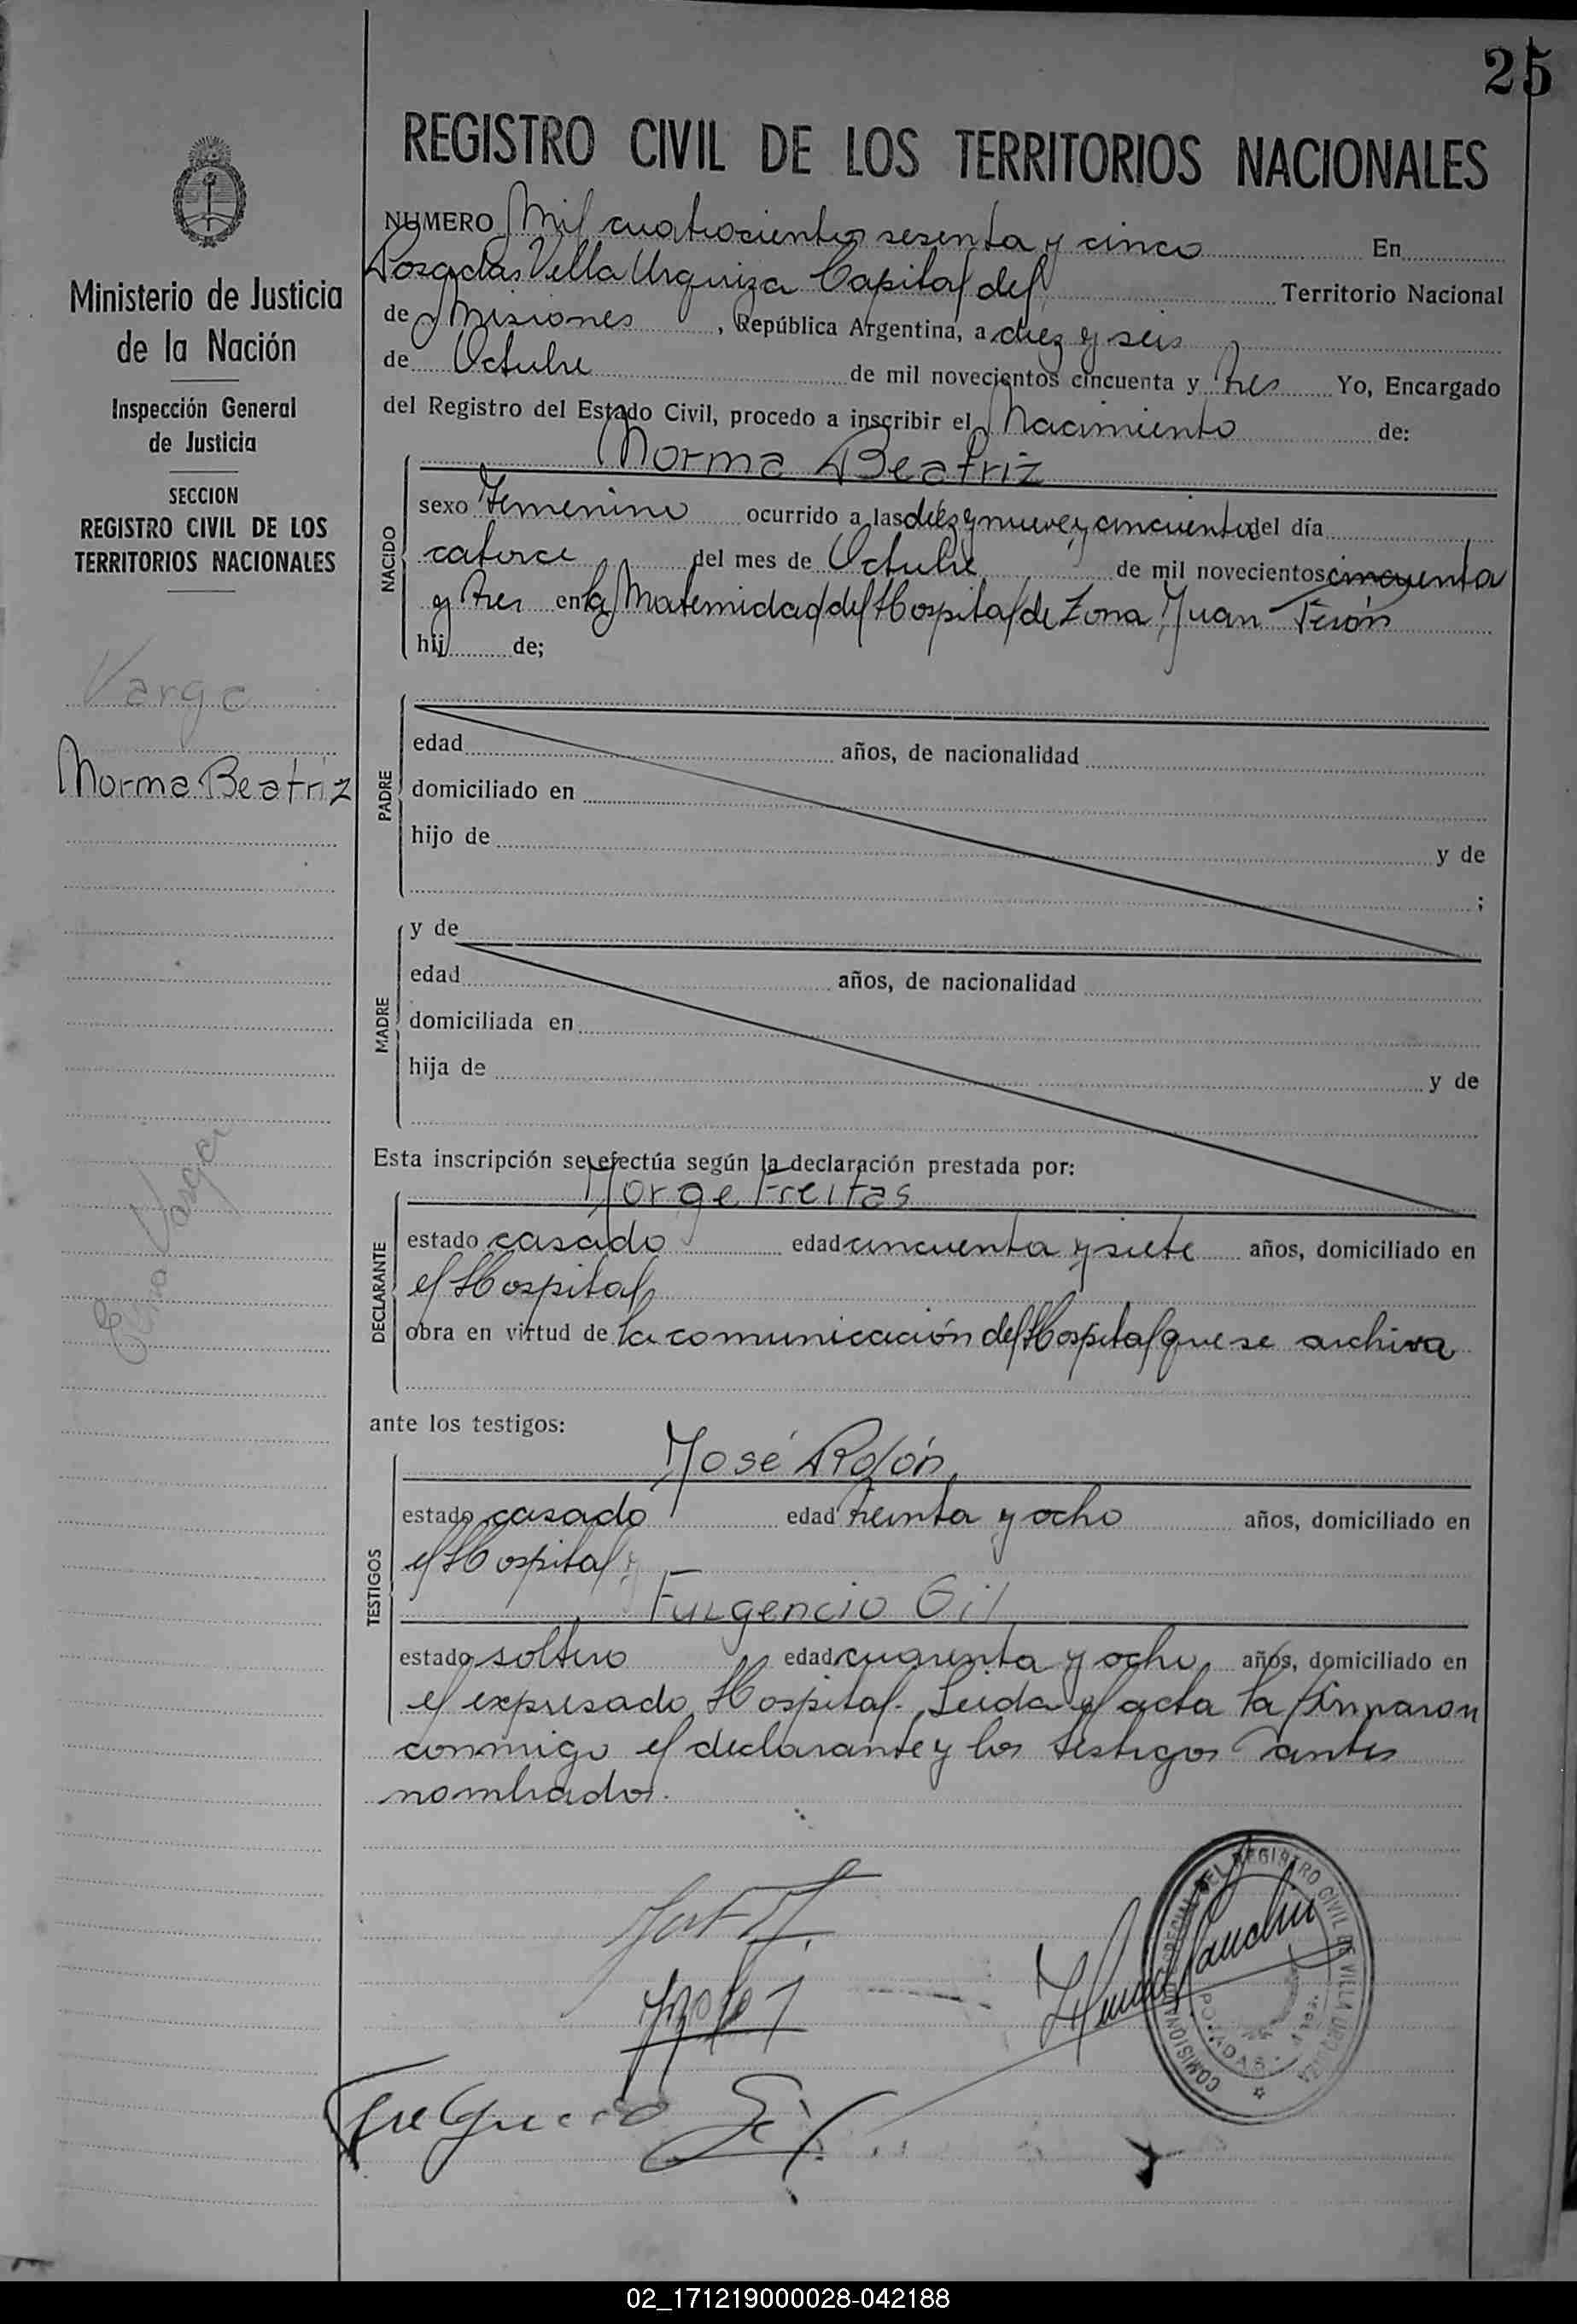 25
REGISTRO CIVIL DE LOS TERRITORIOS NACIONALES
Ministerio de Justicia
de la Nación
Inspección General
de Justicia
SECCION
REGISTRO CIVIL DE LOS
TERRITORIOS NACIONALES
Varga
Norma Beatriz
Varga
NUMERO Mil cuatrocientos sesenta y cinco En
Posadas Villa Urquiza Capital del Territorio Nacional
de Misiones, República Argentina, a diez y seis
de Octubre de mil novecientos cincuenta y tres Yo, Encargado
del Registro del Estado Civil, procedo a inscribir el Nacimiento de:
Norma Beatriz
NACIDO
sexo femenino ocurrido a las diez y nueve y cincuenta del día
catorce del mes de Octubre de mil novecientos cincuenta
y tres en la Maternidad del Hospital de Zona Juan Perón
hij de;
PADRE
edad años, de nacionalidad
domiciliado en
hijo de y de
;
MADRE
y de
edad años, de nacionalidad
domiciliada en
hija de y de
Esta inscripción se efectúa según la declaración prestada por:
Jorge Freitas
DECLARANTE
estado casado edad cincuenta y siete años, domiciliado en
el Hospital
obra en virtud de la comunicación del Hospital que se archiva
ante los testigos:
José Rolón,
TESTIGOS
estado casado edad treinta y ocho años, domiciliado en
el Hospital y
Fulgencio Gil
estado soltero edad cuarenta y ocho años, domiciliado en
el expresado Hospital. Leida el acta la firmaron
conmigo el declarante y los testigos antes
nombrados.
COMISIONADO ESPECIAL DEL REGISTRO CIVIL DE VILLA URQUIZA
POSADAS
02_171219000028-042188